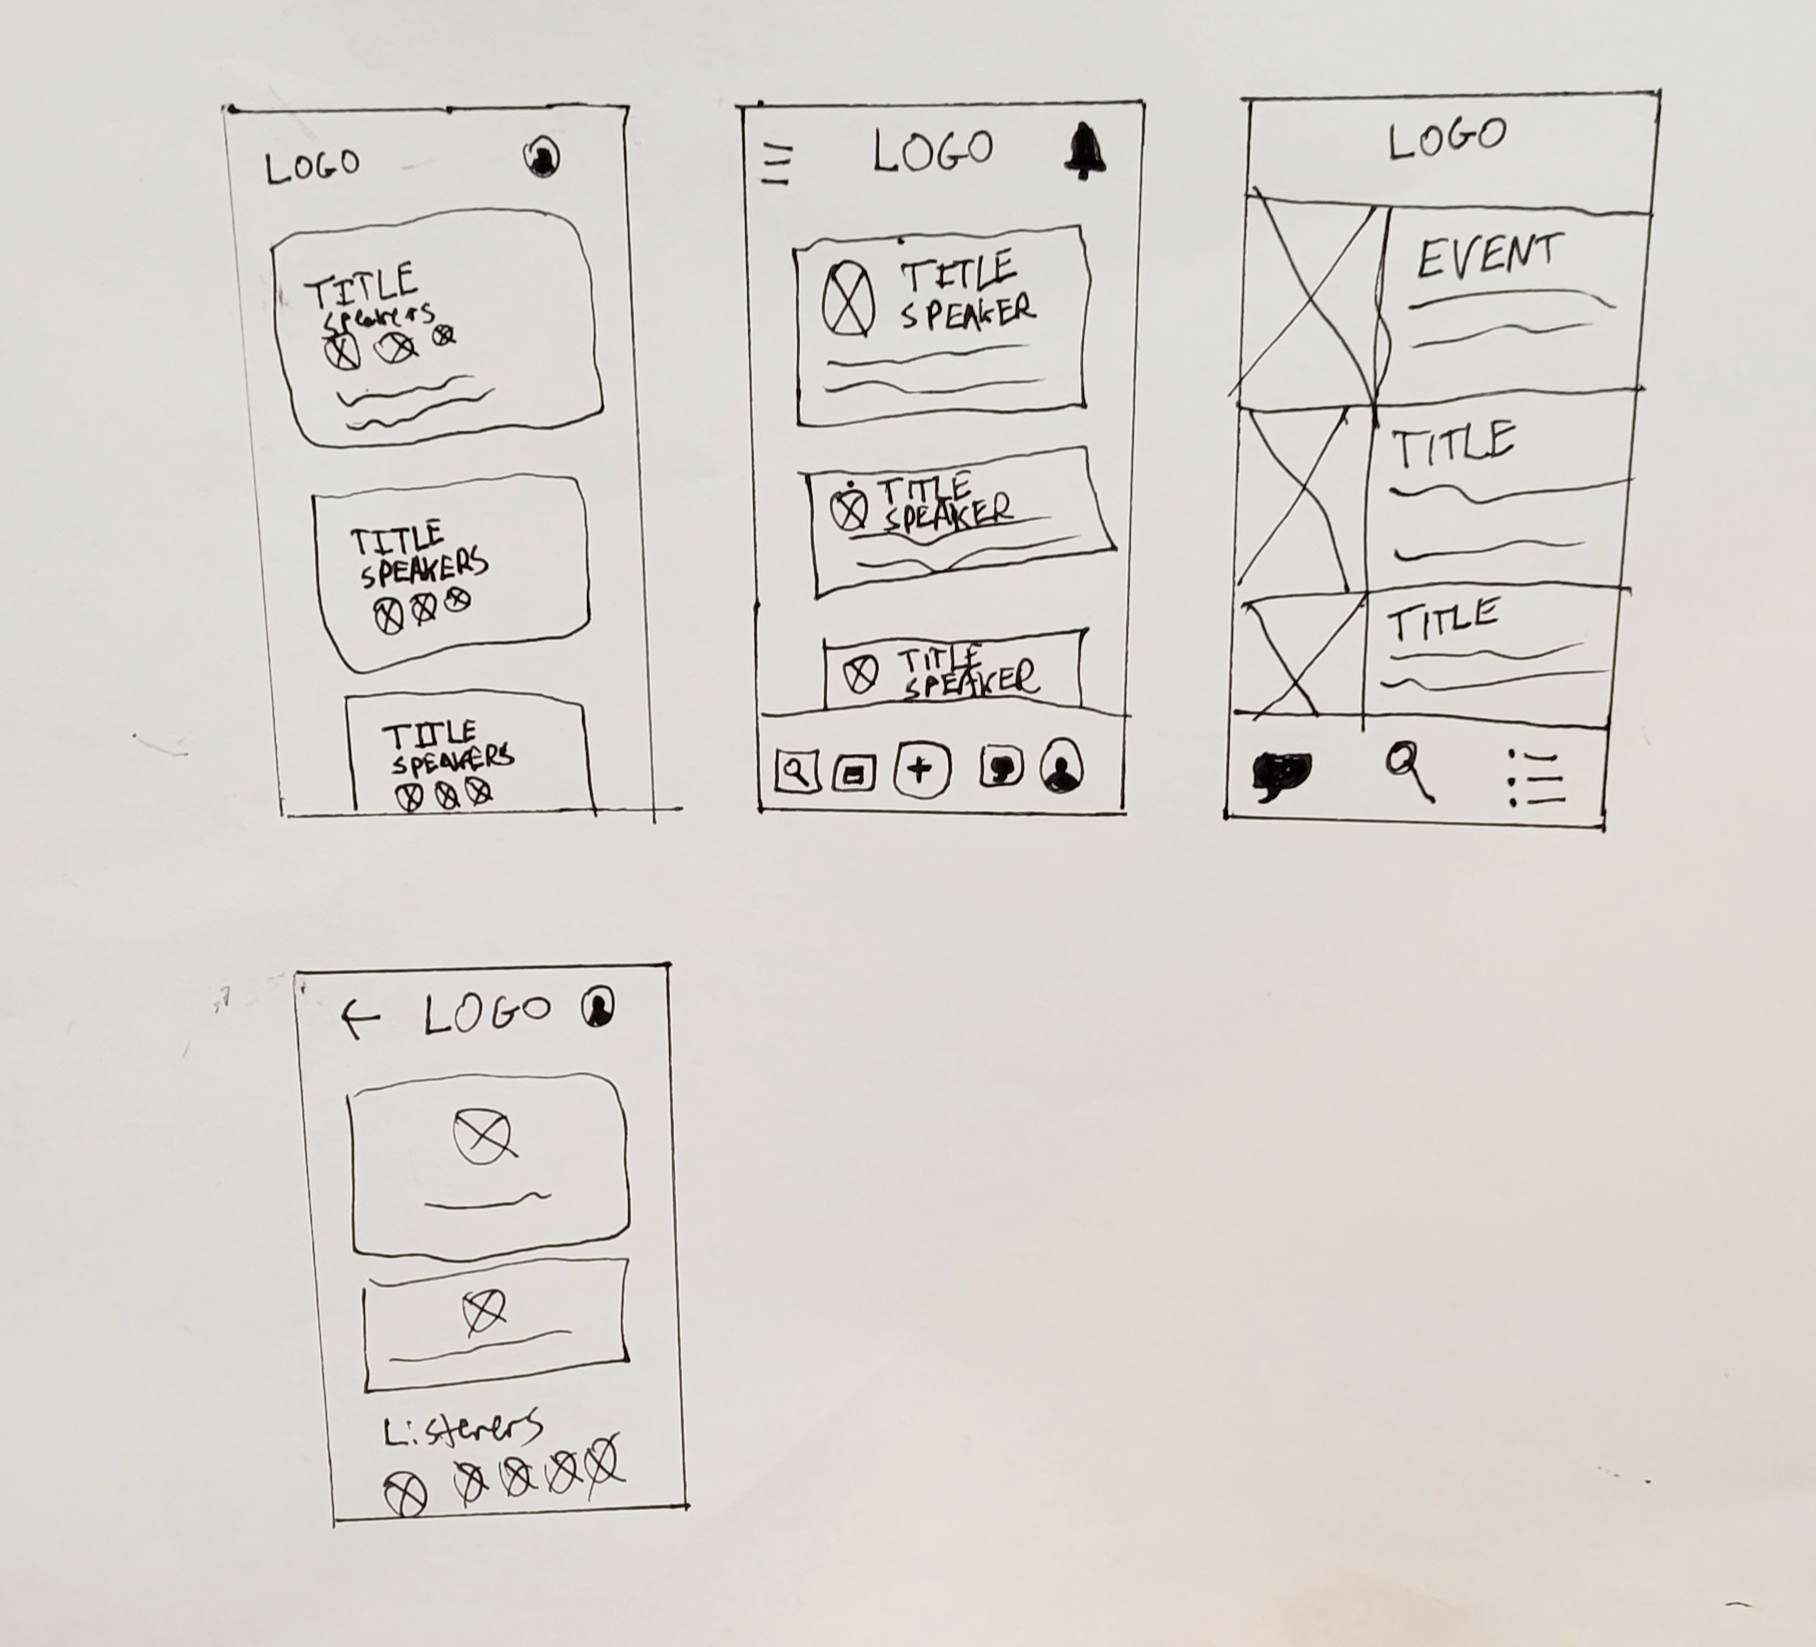 LOGO
TITLE
Speakers
TITLE
SPEAKERS
TITLE
SPEAKERS
LOGO
TITLE
SPEAKER
TITLE
SPEAKER
TITLE
SPEAKER
LOGO
EVENT
TITLE
TITLE
LOGO
Listeners